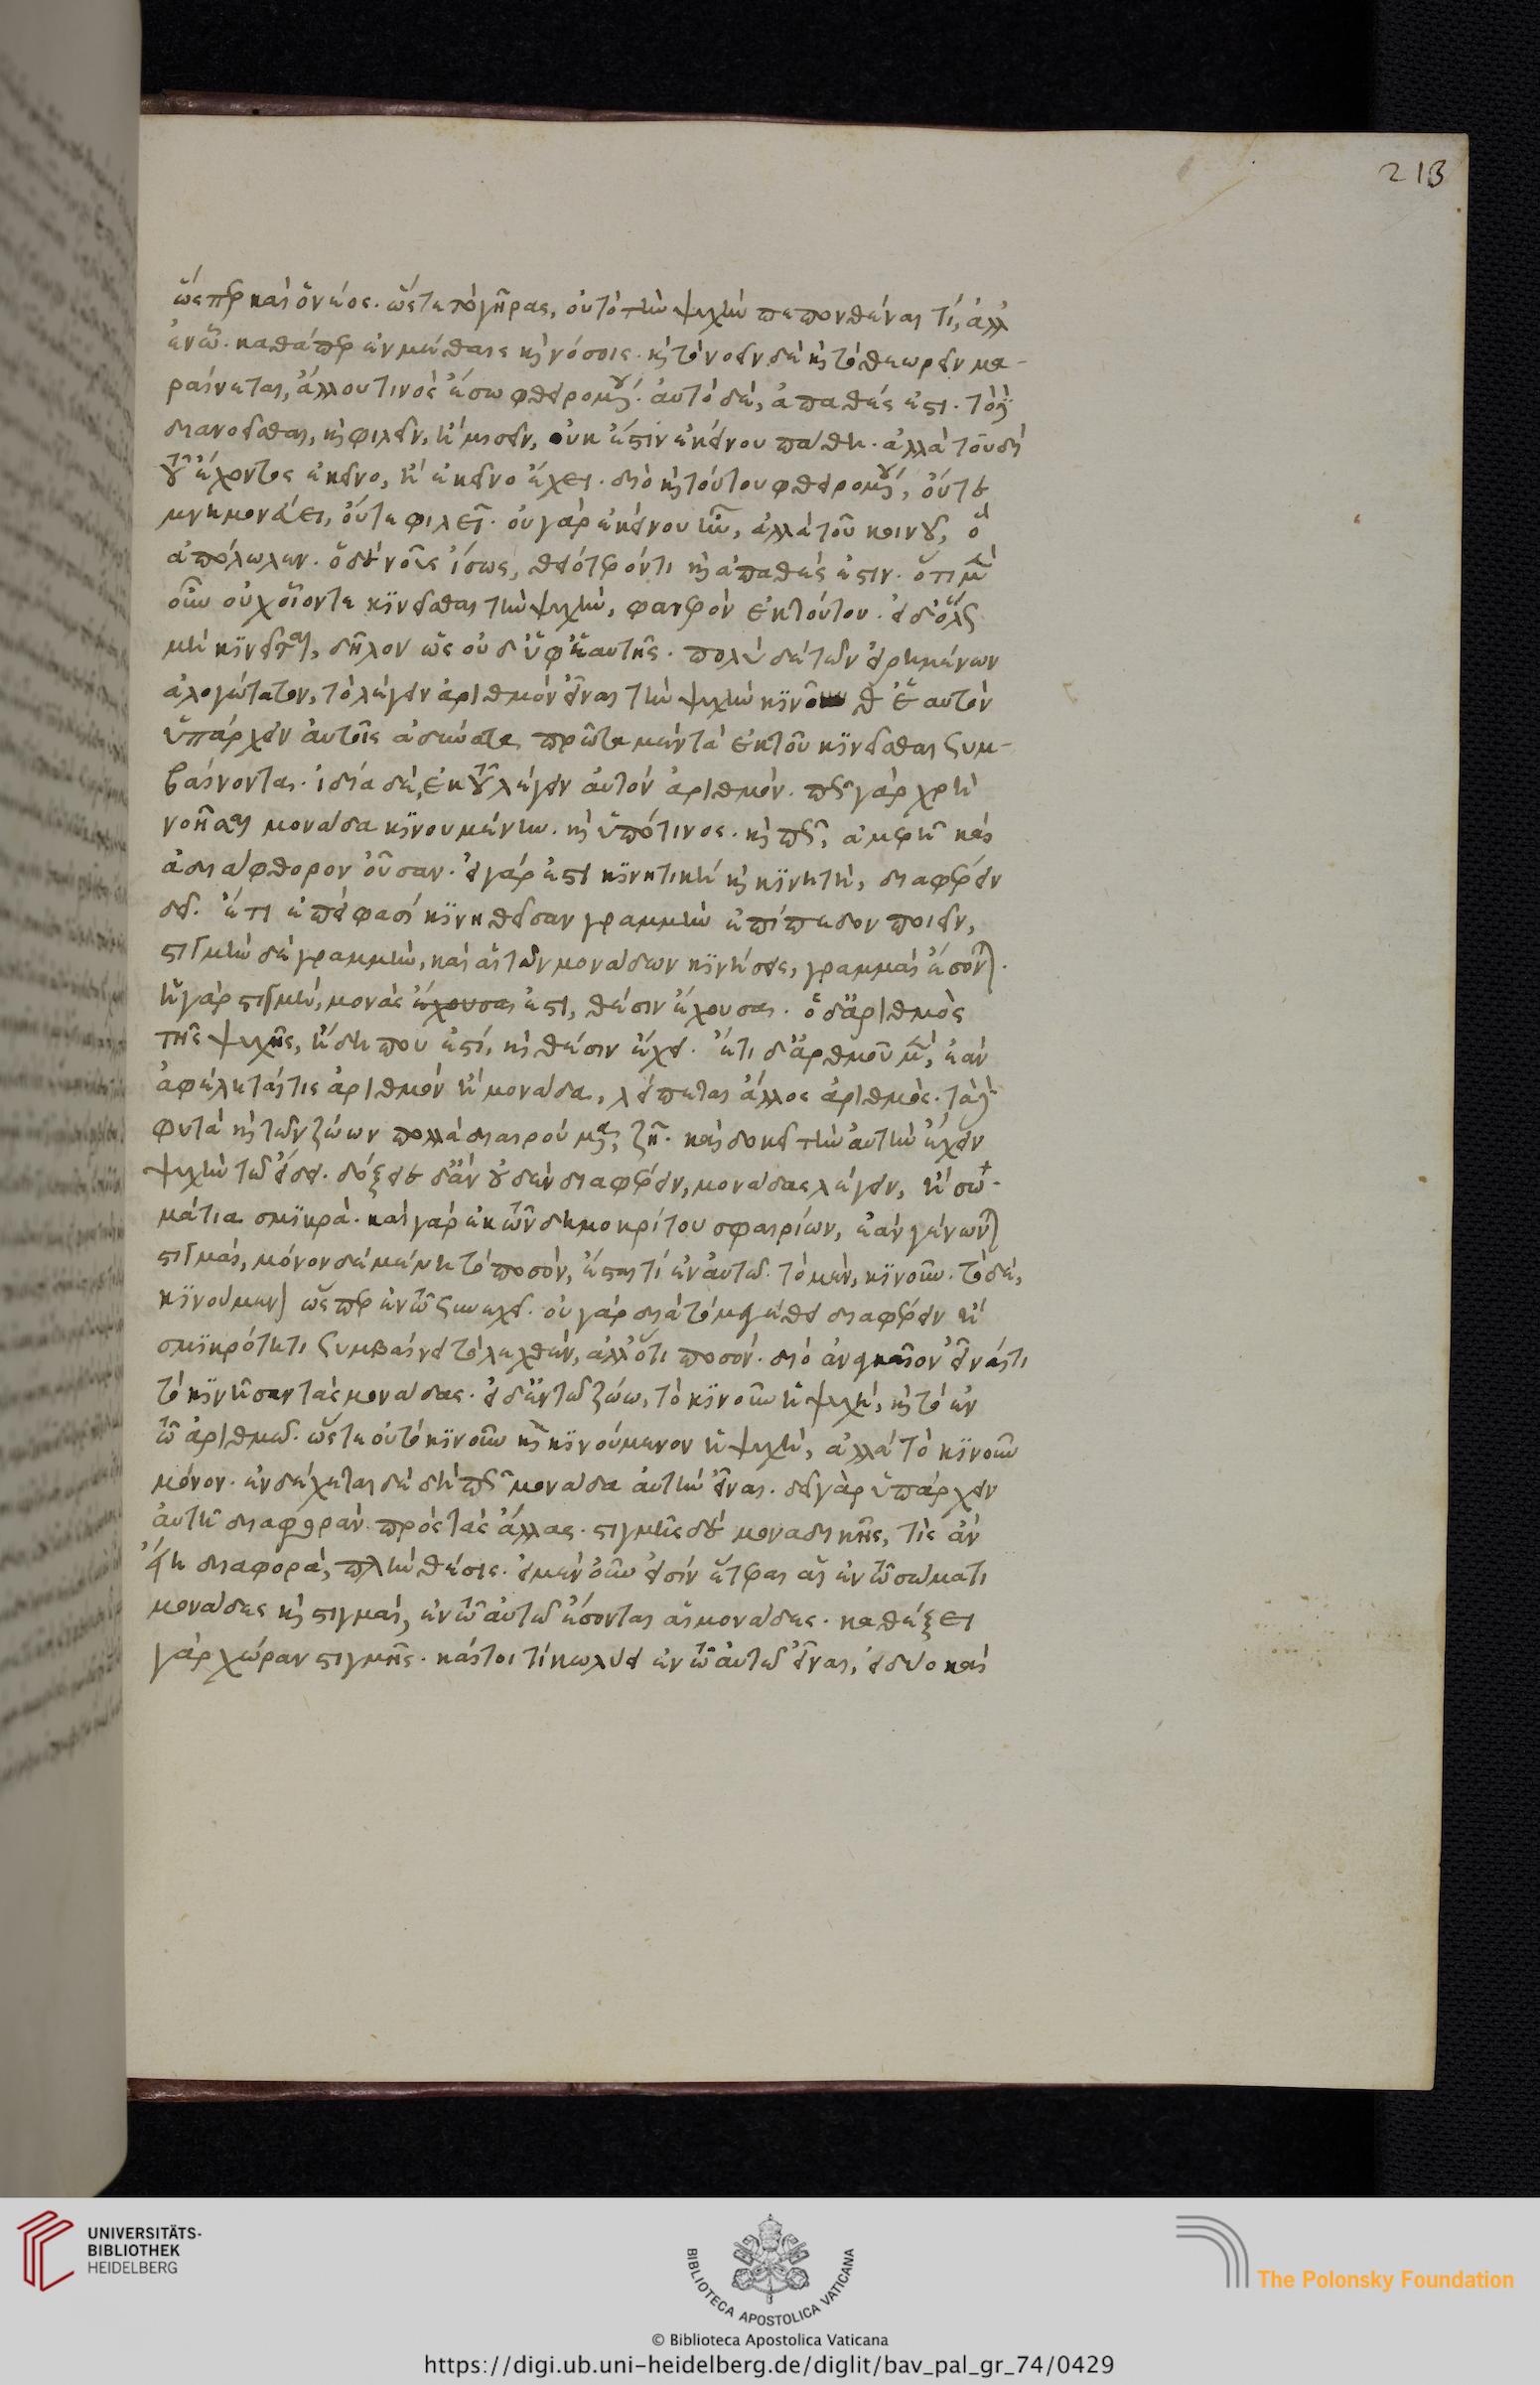 213
ὥσπερ καὶ ὁ νέος. ὥστε τὸ γῆρας, οὐ τὸ τὴν ψυχὴν πεπονθέναι τί, ἀλλ'
ἐν ᾧ. καθάπερ ἐν μέθαις κ νόσοις. κ τὸ νοεῖν δὲ κ τὸ θεωρεῖν μα-
ραίνεται, ἄλλου τινὸς ἔσω φθειρομένου. αὐτὸ δὲ, ἀπαθές ἐστι. τὸ δὲ
διανοεῖσθαι, κ φιλεῖν, ἢ μισεῖν, οὐκ ἔστιν ἐκείνου πάθη. ἀλλὰ τοῦ δὶ
τοῦ ἔχοντος ἐκεῖνο, ἢ ἐκεῖνο ἔχει. διὸ κ τούτου φθειρομένου, οὔτε
μνημονεύει, οὔτε φιλεῖ. οὐ γὰρ ἐκείνου ἦν, ἀλλὰ τοῦ κοινοῦ, ὃ
ἀπόλωλεν. ὁ δὲ νοῦς ἴσως, θειότερόν τι κ ἀπαθές ἐστιν. ὅτι μὲν
οὖν οὐχ οἷόν τε κινεῖσθαι τὴν ψυχὴν, φανερὸν ἐκ τούτου. εἰ δ' ὅλως
μὴ κινεῖται, δῆλον ὡς οὐδ' ὑφ' ἑαυτῆς. πολὺ δὲ τῶν εἰρημένων
ἀλογώτατον, τὸ λέγειν ἀριθμὸν εἶναι τὴν ψυχὴν κινοῦνθ' ἑαυτὸν
ὑπάρχειν αὐτοῖς ἀδύνατα πρῶτα μὲν τὰ ἐκ τοῦ κινεῖσθαι συμ-
βαίνοντα. ἰδία δὲ, ἐκ τοῦ λέγειν αὐτὸν ἀριθμόν. πῶς γὰρ χρὴ
νοῆσαι μονάδα κινουμένην. κ ὑπό τινος. κ πῶς, ἀμερῆ καὶ
ἀδιάφθορον οὖσαν. εἰ γάρ ἐστι κινητικὴ κ κινητὴ, διαφέρειν
δεῖ. ἔτι ἐπεί φασί κινηθεῖσαν γραμμὴν ἐπίπεδον ποιεῖν,
στιγμὴν δὲ γραμμὴν, καὶ αἱ τῶν μονάδων κινήσεις, γραμμαὶ ἔσονται.
ἡ γὰρ στιγμὴ, μονάς ἔχουσα ἐστι, θέσιν ἔχουσα. ὁ δ' ἀριθμὸς
τῆς ψυχῆς, ἤδη που ἐστί, κ θέσιν ἔχει. ἔτι δ' ἀριθμοῦ μὲν, ἐὰν
ἀφέλῃ τάς τις ἀριθμὸν ἢ μονάδα, λείπεται ἄλλος ἀριθμὸς. τὰ δὲ
φυτὰ κ τῶν ζώων πολλὰ διαιρούμενα, ζῇ. καὶ δοκεῖ τὴν αὐτὴν ἔχειν
ψυχὴν τῷ εἴδει. δόξειε δ' ἂν οὐδὲν διαφέρειν, μονάδας λέγειν, ἢ σω-
μάτια σμικρά. καὶ γὰρ ἐκ τῶν δημοκρίτου σφαιρίων, ἐὰν γένωνται
στιγμαὶ, μόνον δὲ μένῃ τὸ ποσὸν, ἔσται τί ἐν αὐτῷ. τὸ μὲν, κινοῦν. τὸ δὲ,
κινούμενον ὥσπερ ἐν τῷ συνεχεῖ. οὐ γὰρ διὰ τὸ μεγέθει διαφέρειν ἢ
σμικρότητι συμβαίνει τὸ λεχθὲν, ἀλλ' ὅτι ποσόν. διὸ ἀναγκαῖον εἶναί τι
τὸ κινῆσαν τὰς μονάδας. εἰ δ' ἐν τῷ ζώῳ, τὸ κινοῦν ἡ ψυχὴ, κ τὸ ἐν
τῷ ἀριθμῷ. ὥστε οὐ τὸ κινοῦν κ κινούμενον ἡ ψυχὴ, ἀλλὰ τὸ κινοῦν
μόνον. ἐνδέχεται δὲ δὴ πῶς μονάδα αὐτὴν εἶναι. δεῖ γὰρ ὑπάρχειν
αὐτῇ διαφορὰν πρὸς τὰς ἄλλας. στιγμῆς δὲ μοναδικῆς, τὶς ἂν
εἴη διαφορὰ, πλὴν θέσις. εἰ μὲν οὖν εἰσὶν ἕτεραι αἱ ἐν τῷ σώματι
μονάδες κ στιγμαὶ, ἐν τῷ αὐτῷ ἔσονται αἱ μονάδες. καθέξει
γὰρ χώραν στιγμῆς. καίτοι τί κωλύει ἐν τῷ αὐτῷ εἶναι, εἰ δύο καὶ
UNIVERSITÄTS-
BIBLIOTHEK
HEIDELBERG
BIBLIOTECA APOSTOLICA VATICANA
The Polonsky Foundation
© Biblioteca Apostolica Vaticana
https://digi.ub.uni-heidelberg.de/diglit/bav_pal_gr_74/0429